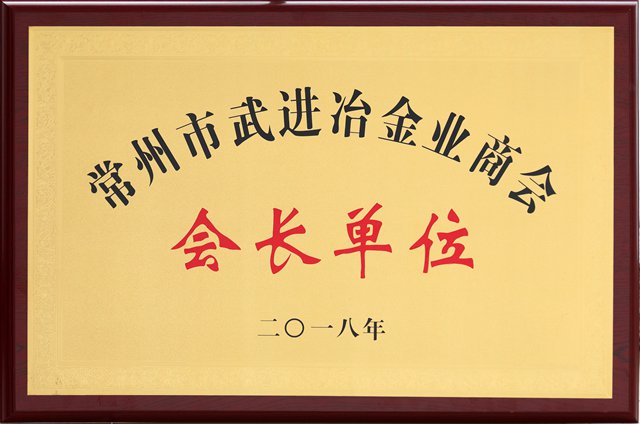 常州市武进冶金业商会
会长单位
二〇一八年